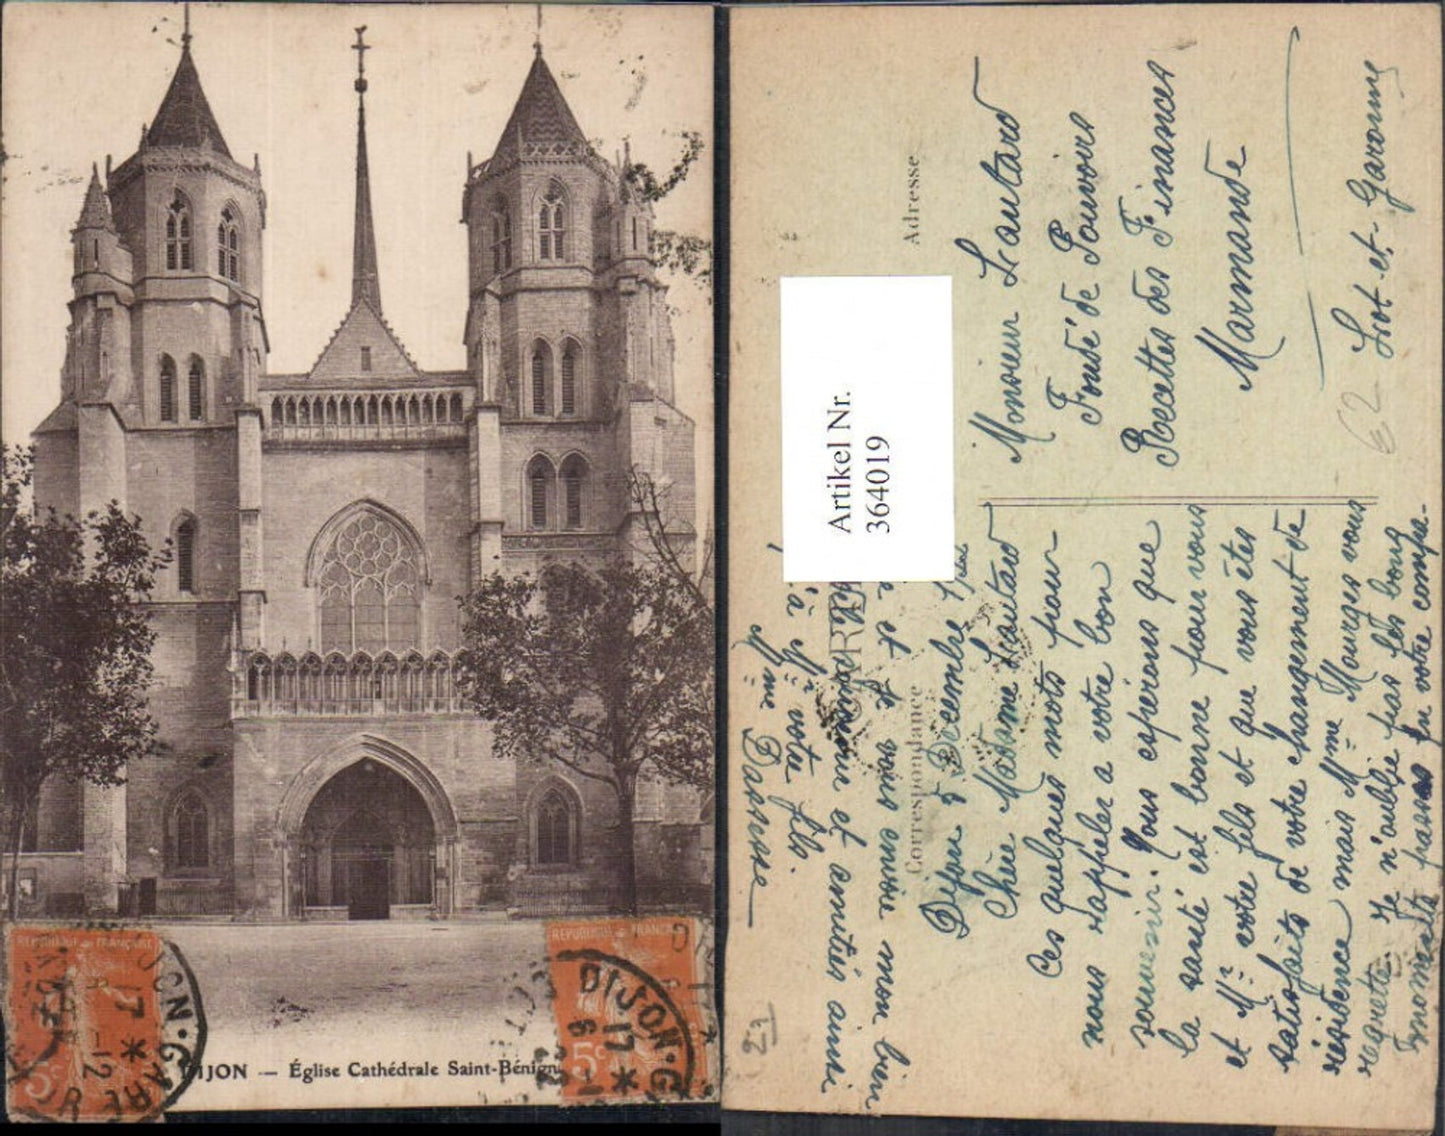 DIJON — Église Cathédrale Saint-Bénigne
REPUBLIQUE FRANÇAISE
5c
REPUBLIQUE FRANÇAISE
5c
DIJON-GARE
17 * 9 -12
Artikel Nr.
364019
Adresse
Correspondance
Monsieur Lautard
Fondé de Pouvoirs
Recettes des Finances
Marmande
Lot-et-Garonne
62
Dijon 8 Décembre
Chère Madame Lautard
Ces quelques mots pour
nous rappeler a votre bon
souvenir. Nous espérons que
la santé est bonne pour vous
et Mr votre fils et que vous êtes
satisfaits de votre changement de
résidence mais Mme Mourges vous
regrette. Je n'oublie pas les bons
moments passés en votre compa-
et je vous envoie mon bon
et amitiés aussi
à Mr votre fils.
Mme Dasesse